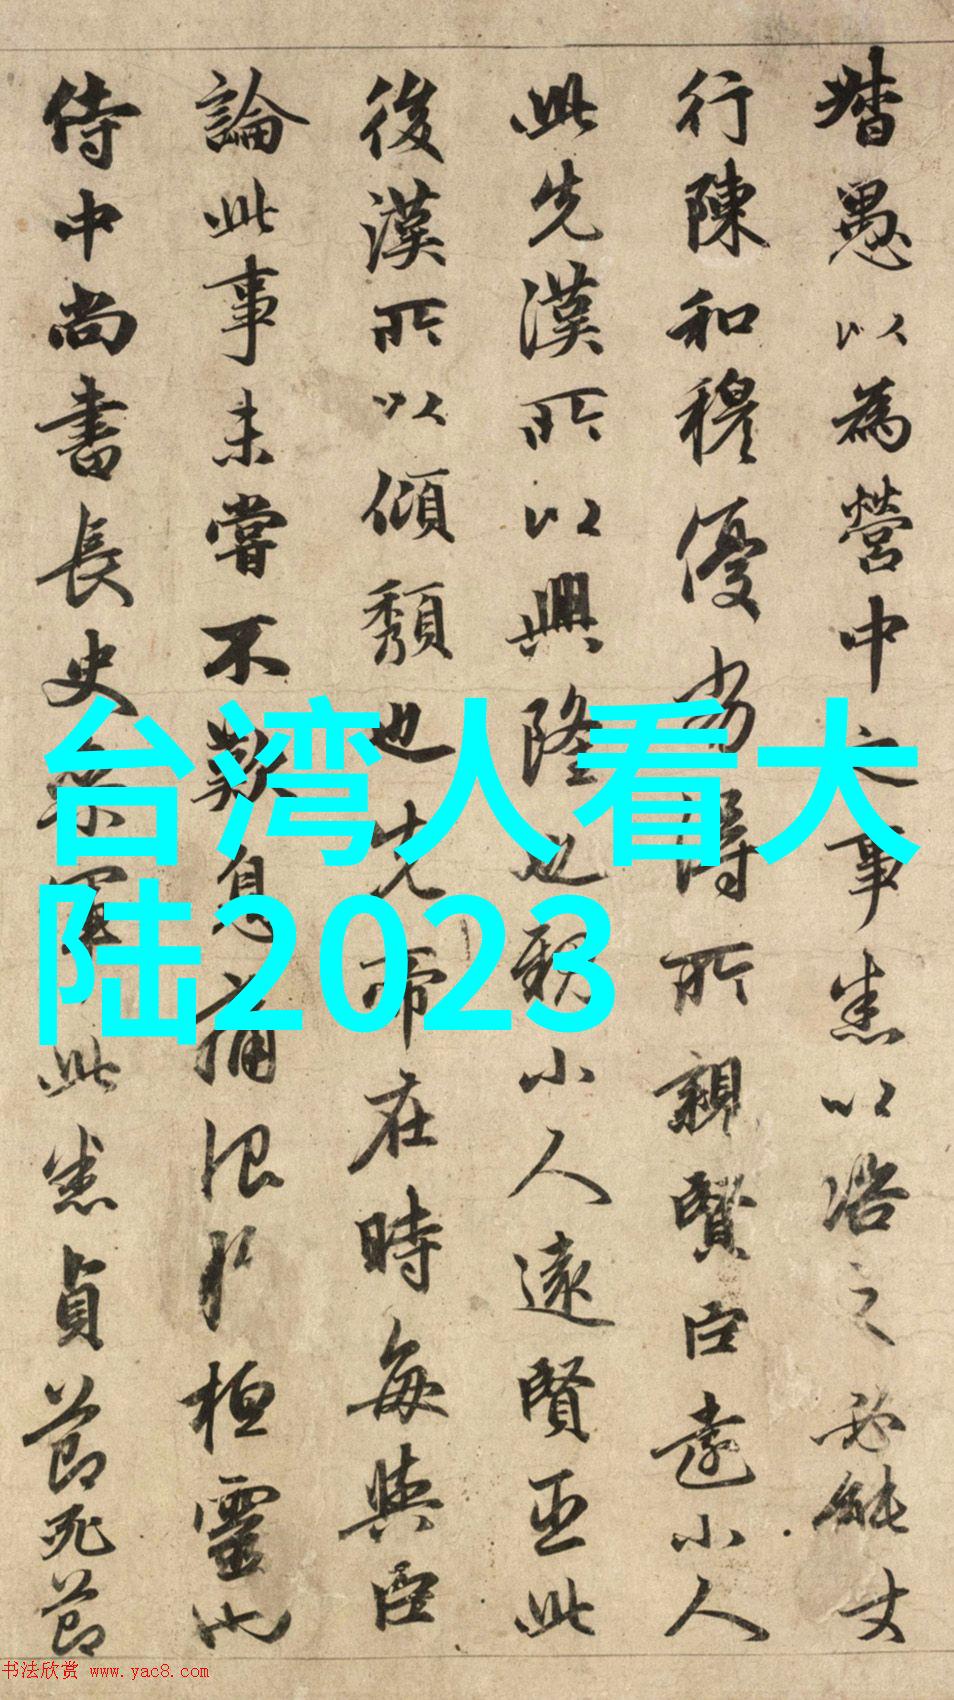 愚以為營中之事悉以之必能丈
行陳和穆優劣得所親賢臣遠小人
此先漢所以興隆也親小人遠賢臣此
後漢所以傾頹也先帝在時每與臣
論此事未嘗不歎息痛恨於桓靈也
侍中尚書長史參軍此悉貞節死節
台湾人看大
陆2023
书法欣赏 www.yac8.com